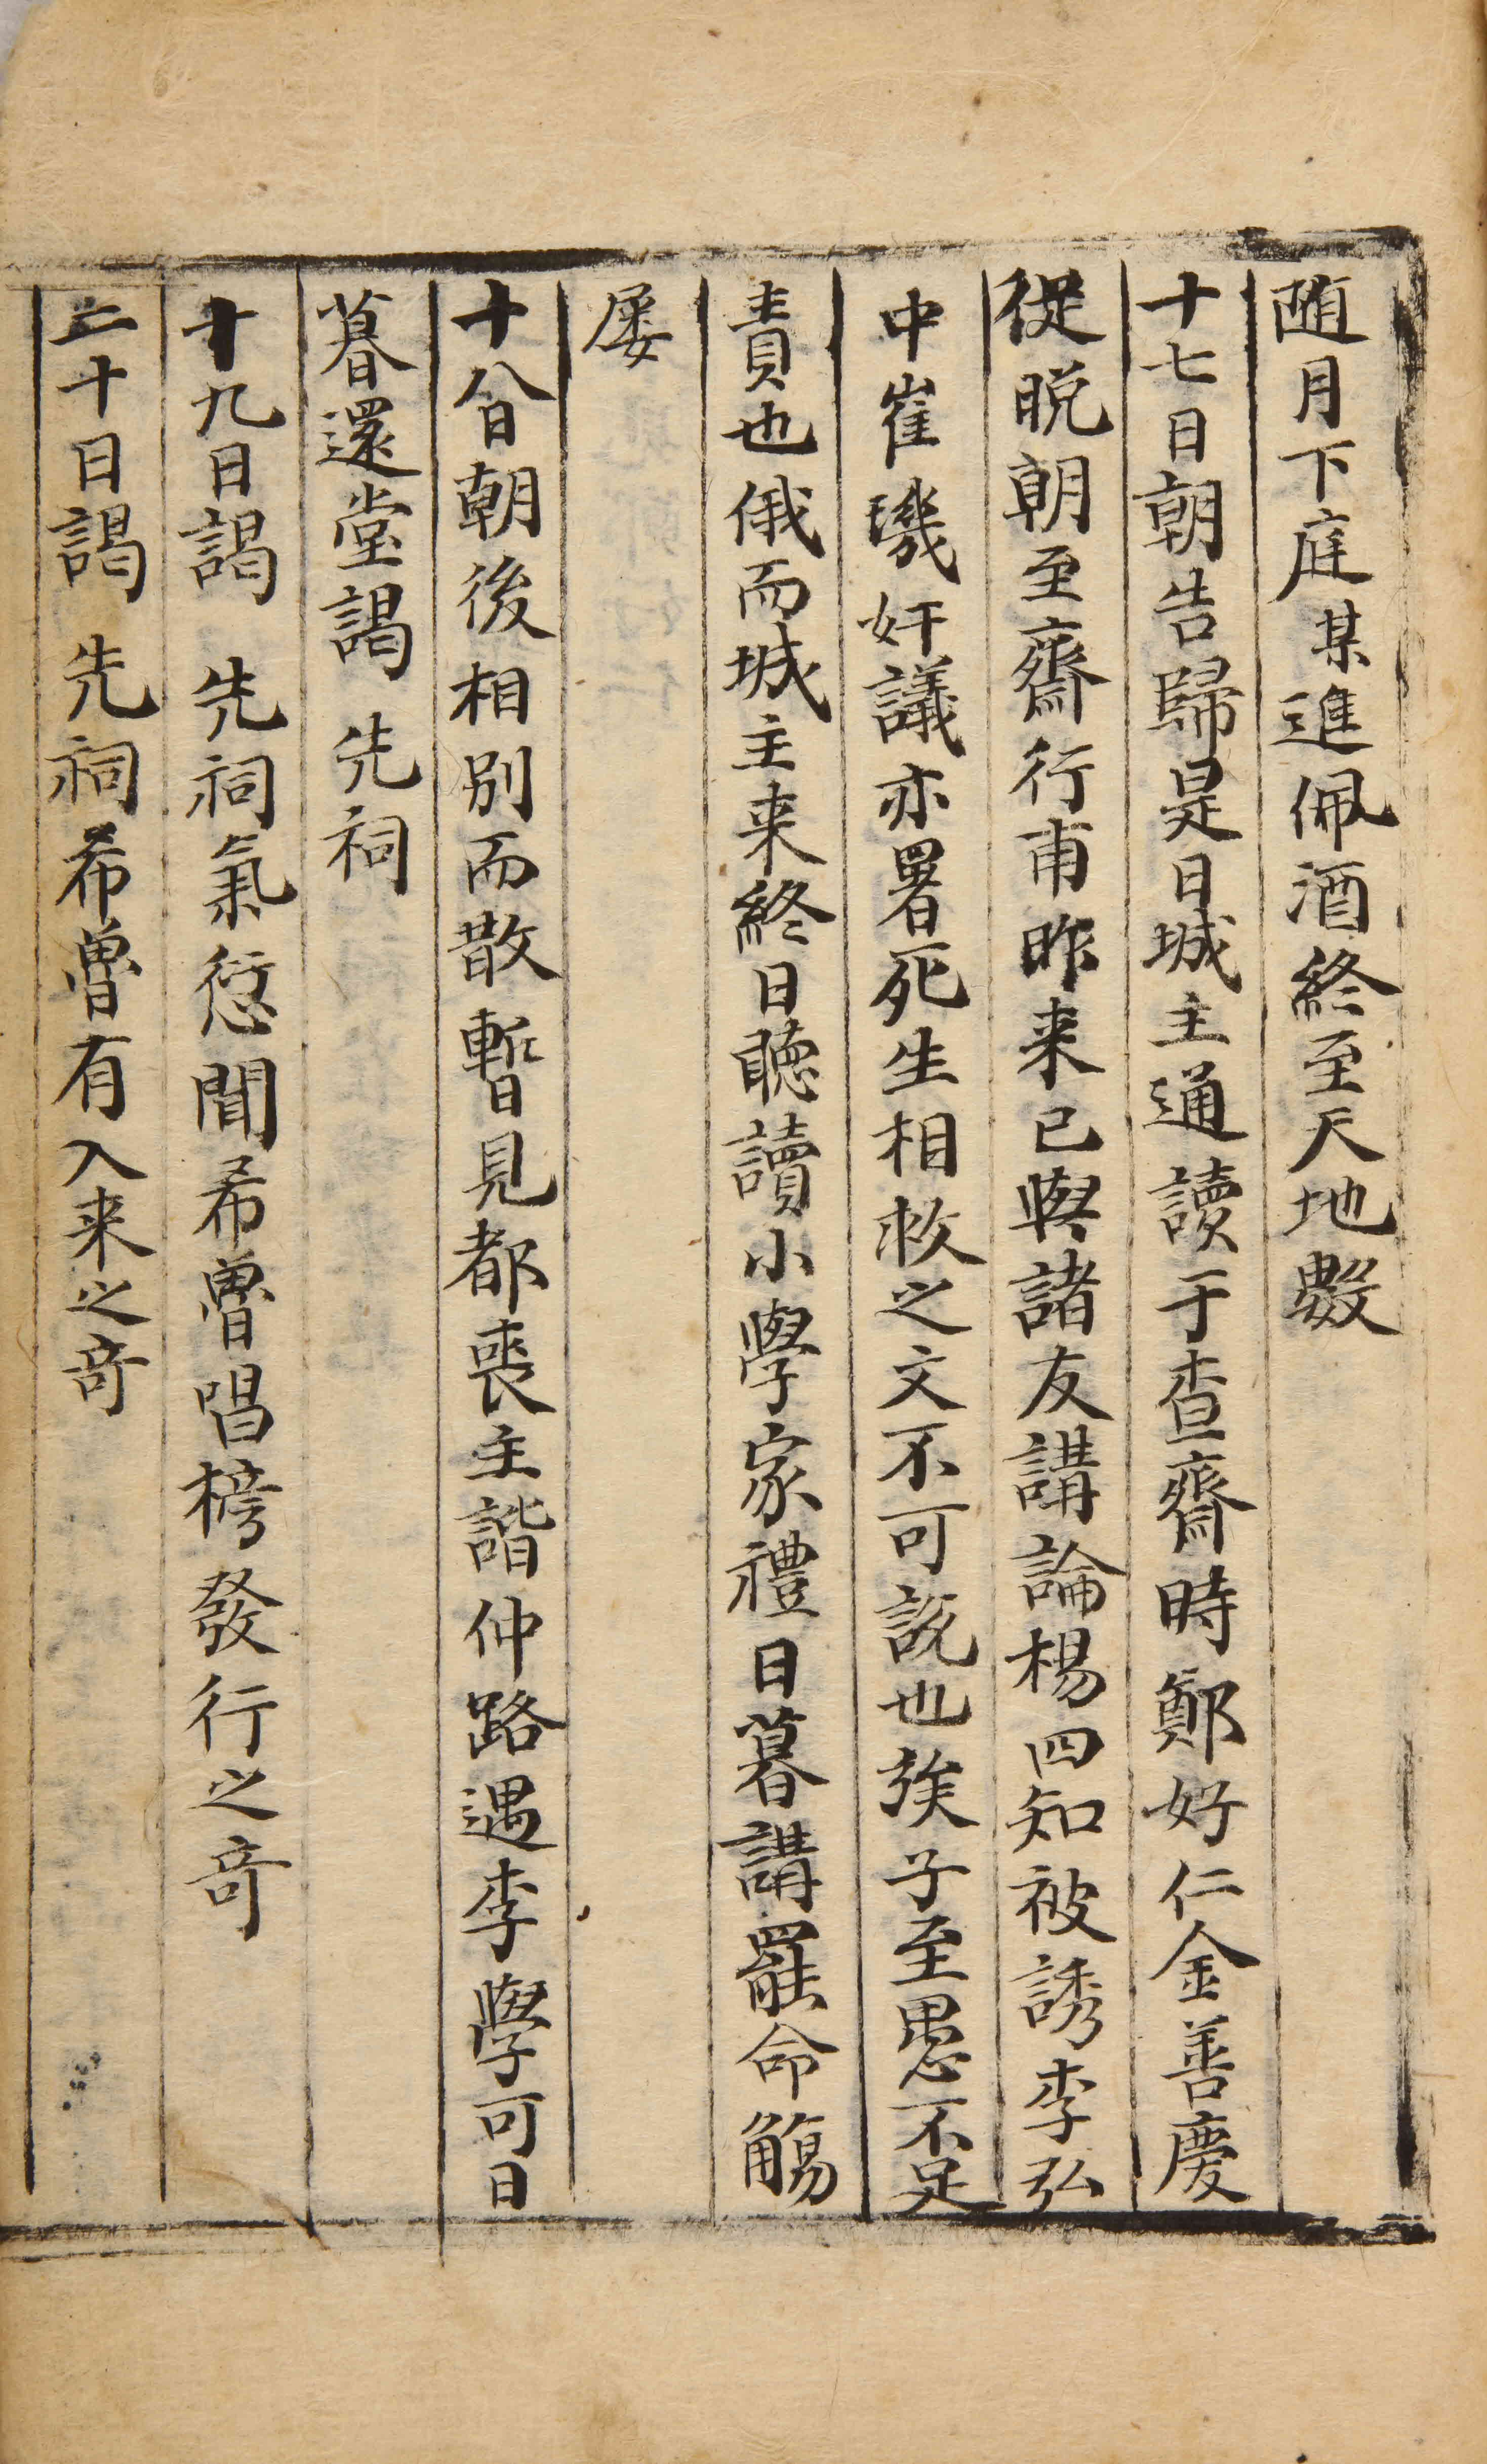 随月下庭某進佩酒終至天地數
十七日朝告歸是日城主通讀于查齋時鄭好仁金善慶
從晩朝至齋行甫昨来已與諸友講論楊四知被誘李弘
中崔璣奸議亦署死生相救之文不可說也族子至愚不足
責也俄而城主来終日聽讀小學家禮日暮講罷命觴
屡
十八日朝後相別而散暫見都喪主諧仲路遇李學可日
暮還堂謁 先祠
十九日謁 先祠氣愆聞希魯唱榜發行之奇
二十日謁 先祠希魯有入来之奇